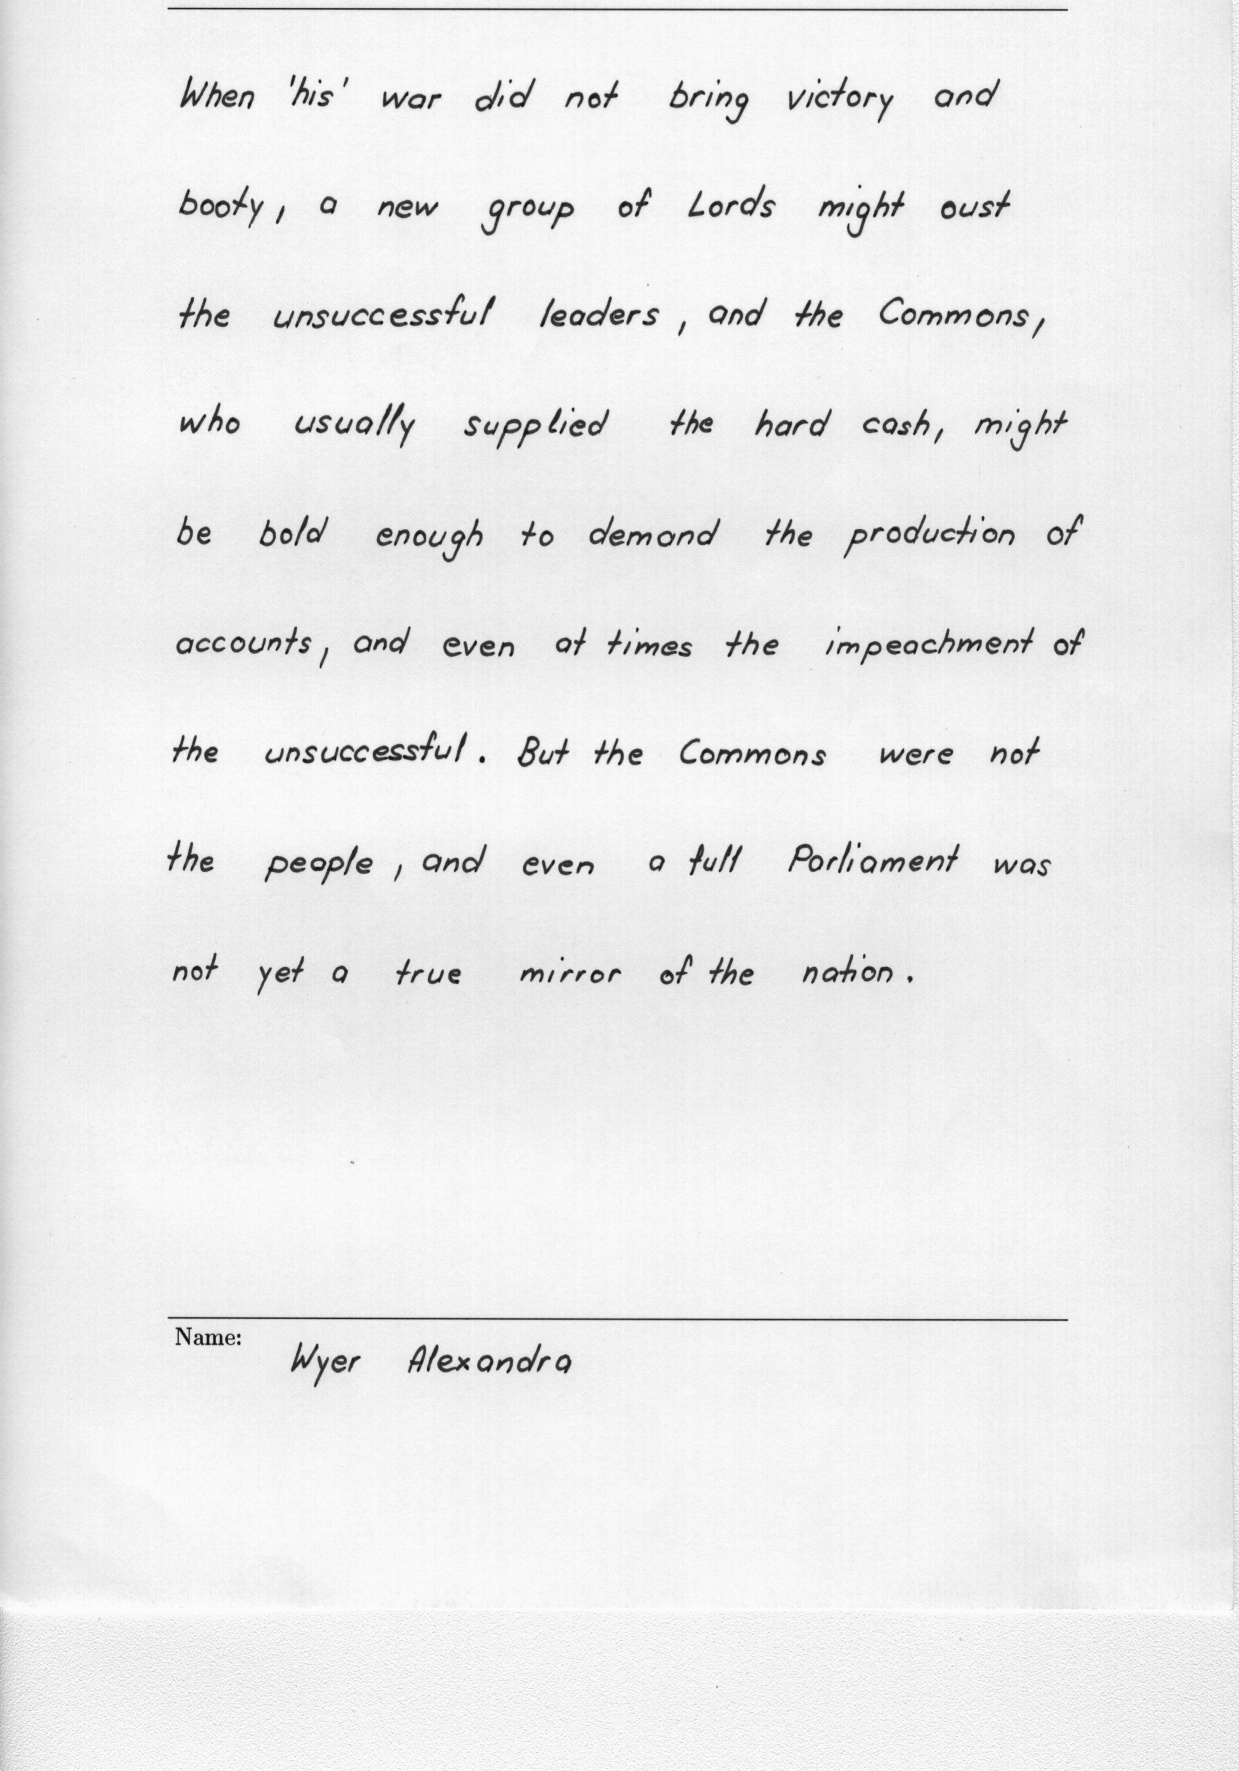 When 'his' war did not bring victory and
booty, a new group of Lords might oust
the unsuccessful leaders, and the Commons,
who usually supplied the hard cash, might
be bold enough to demand the production of
accounts, and even at times the impeachment of
the unsuccessful. But the Commons were not
the people, and even a full Parliament was
not yet a true mirror of the nation.
Name:
Wyer Alexandra